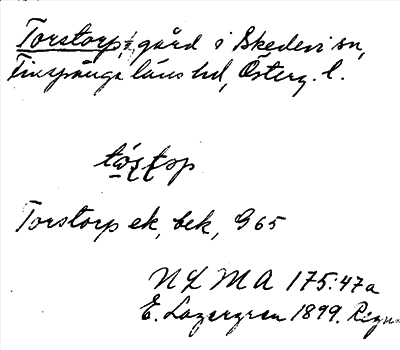 Torstorp, gård i Skedevi sn,
Finspånga läns hd, Österg. l.
tós̱tȯp
Torstorp ek, bek, G 65
NLMA 175:47a
E. Lagergren 1899. Regn